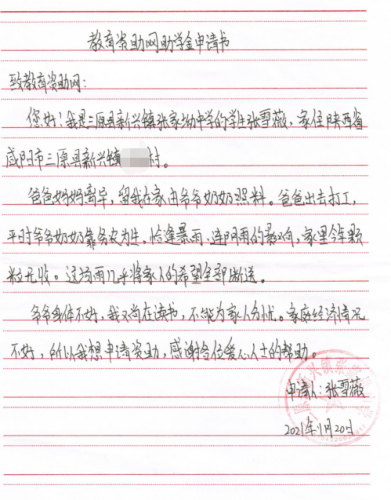 教育资助网助学金申请书
致教育资助网：
您好！我是三原县新兴镇张家坳中学的学生张雪薇，家住陕西省
咸阳市三原县新兴镇 村。
爸爸妈妈离异，留我在家由爷爷奶奶照料。爸爸出去打工，
平时爷爷奶奶靠务农为生，恰逢暴雨、连阴雨的影响，家里今年颗
粒无收。这场雨几乎将家人的希望全部断送。
爷爷身体不好，我又尚在读书，不能为家人分忧。家庭经济情况
不好，所以我想申请资助，感谢各位爱心人士的帮助。
申请人：张雪薇
2021年11月20日